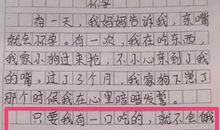 怀孕
有一天，我妈妈告诉我，亲嘴
就会怀孕。有一次，我在吃东西，
我家小狗过来抢，不小心亲到了我
的嘴。过了3个月，我家狗下崽了
那个时候我在心里暗暗发誓。
只要我有一口吃的，就不会饿